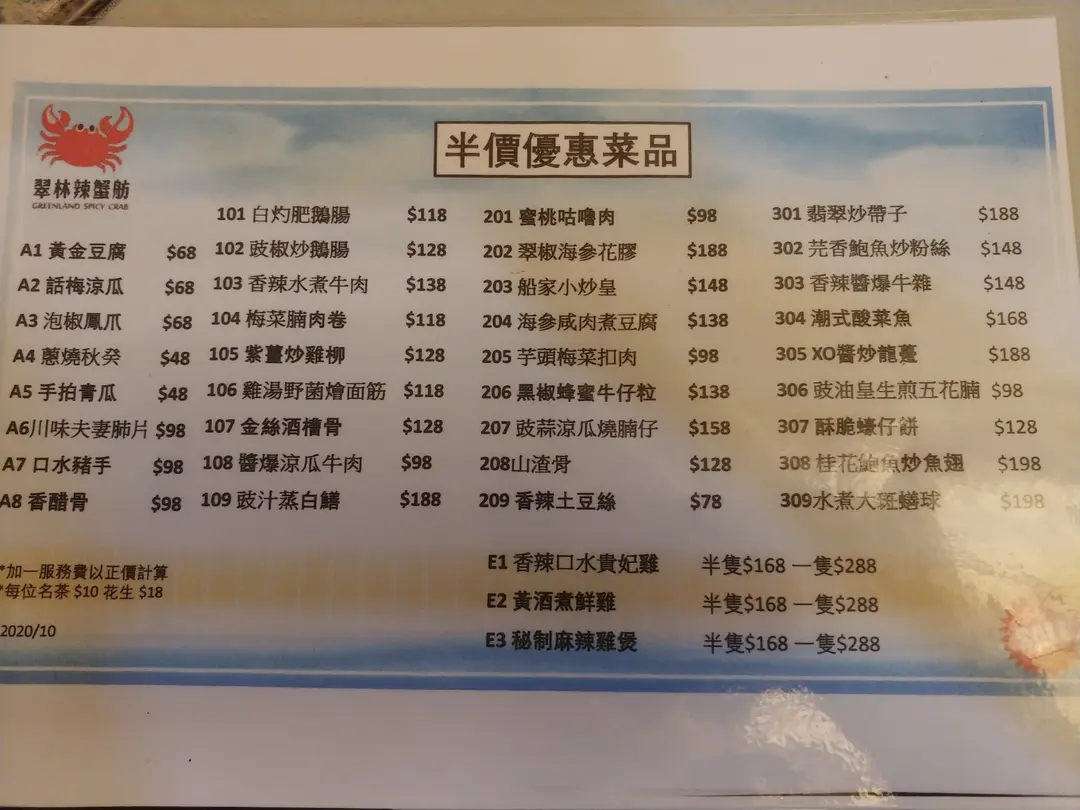 半價優惠菜品
翠林辣蟹舫
GREENLAND SPICY CRAB
A1 黃金豆腐 $68
A2 話梅涼瓜 $68
A3 泡椒鳳爪 $68
A4 蔥燒秋葵 $48
A5 手拍青瓜 $48
A6川味夫妻肺片 $98
A7 口水豬手 $98
A8 香醋骨 $98
101 白灼肥鵝腸 $118
102 豉椒炒鵝腸 $128
103 香辣水煮牛肉 $138
104 梅菜腩肉卷 $118
105 紫薑炒雞柳 $128
106 雞湯野菌燴面筋 $118
107 金絲酒槽骨 $128
108 醬爆涼瓜牛肉 $98
109 豉汁蒸白鱔 $188
201 蜜桃咕嚕肉 $98
202 翠椒海參花膠 $188
203 船家小炒皇 $148
204 海參咸肉煮豆腐 $138
205 芋頭梅菜扣肉 $98
206 黑椒蜂蜜牛仔粒 $138
207 豉蒜涼瓜燒腩仔 $158
208山渣骨 $128
209 香辣土豆絲 $78
301 翡翠炒帶子 $188
302 芫香鮑魚炒粉絲 $148
303 香辣醬爆牛雜 $148
304 潮式酸菜魚 $168
305 XO醬炒龍躉 $188
306 豉油皇生煎五花腩 $98
307 酥脆蠔仔餅 $128
308 桂花鮑魚炒魚翅 $198
309水煮大斑鱔球 $198
E1 香辣口水貴妃雞 半隻$168 一隻$288
E2 黃酒煮鮮雞 半隻$168 一隻$288
E3 秘制麻辣雞煲 半隻$168 一隻$288
*加一服務費以正價計算
*每位名茶 $10 花生 $18
2020/10